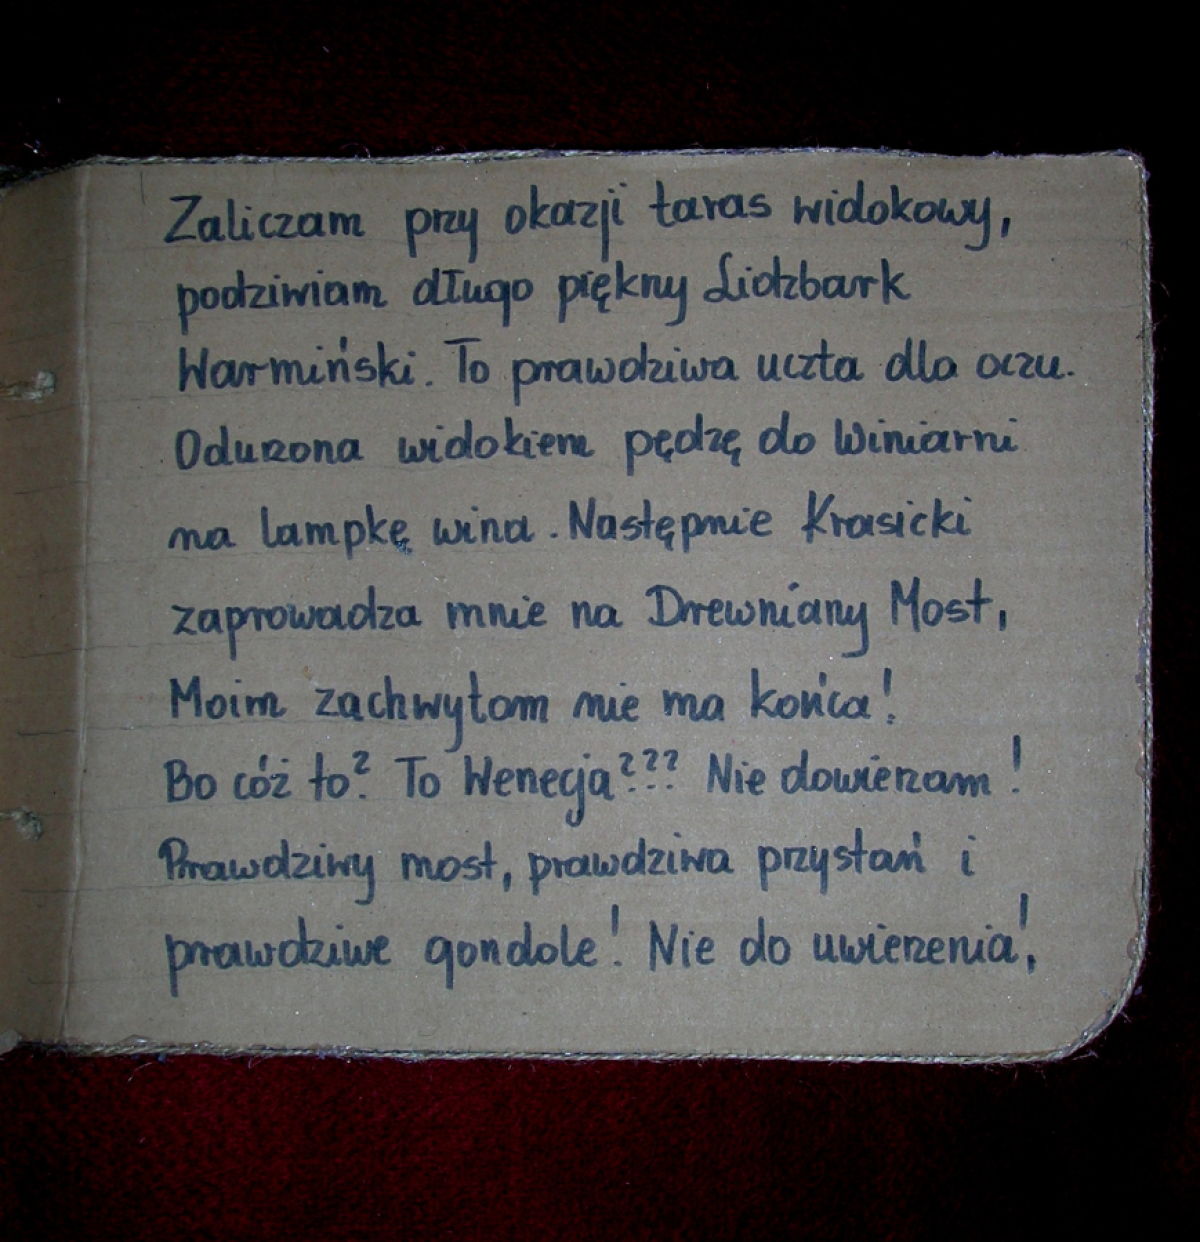 Zaliczam przy okazji taras widokowy,
podziwiam długo piękny Lidzbark
Warmiński. To prawdziwa uczta dla oczu.
Odurzona widokiem pędzę do Winiarni
na lampkę wina. Następnie Krasicki
zaprowadza mnie na Drewniany Most,
Moim zachwytom nie ma końca!
Bo cóż to? To Wenecja??? Nie dowierzam!
Prawdziwy most, prawdziwa przystań i
prawdziwe gondole! Nie do uwierzenia!